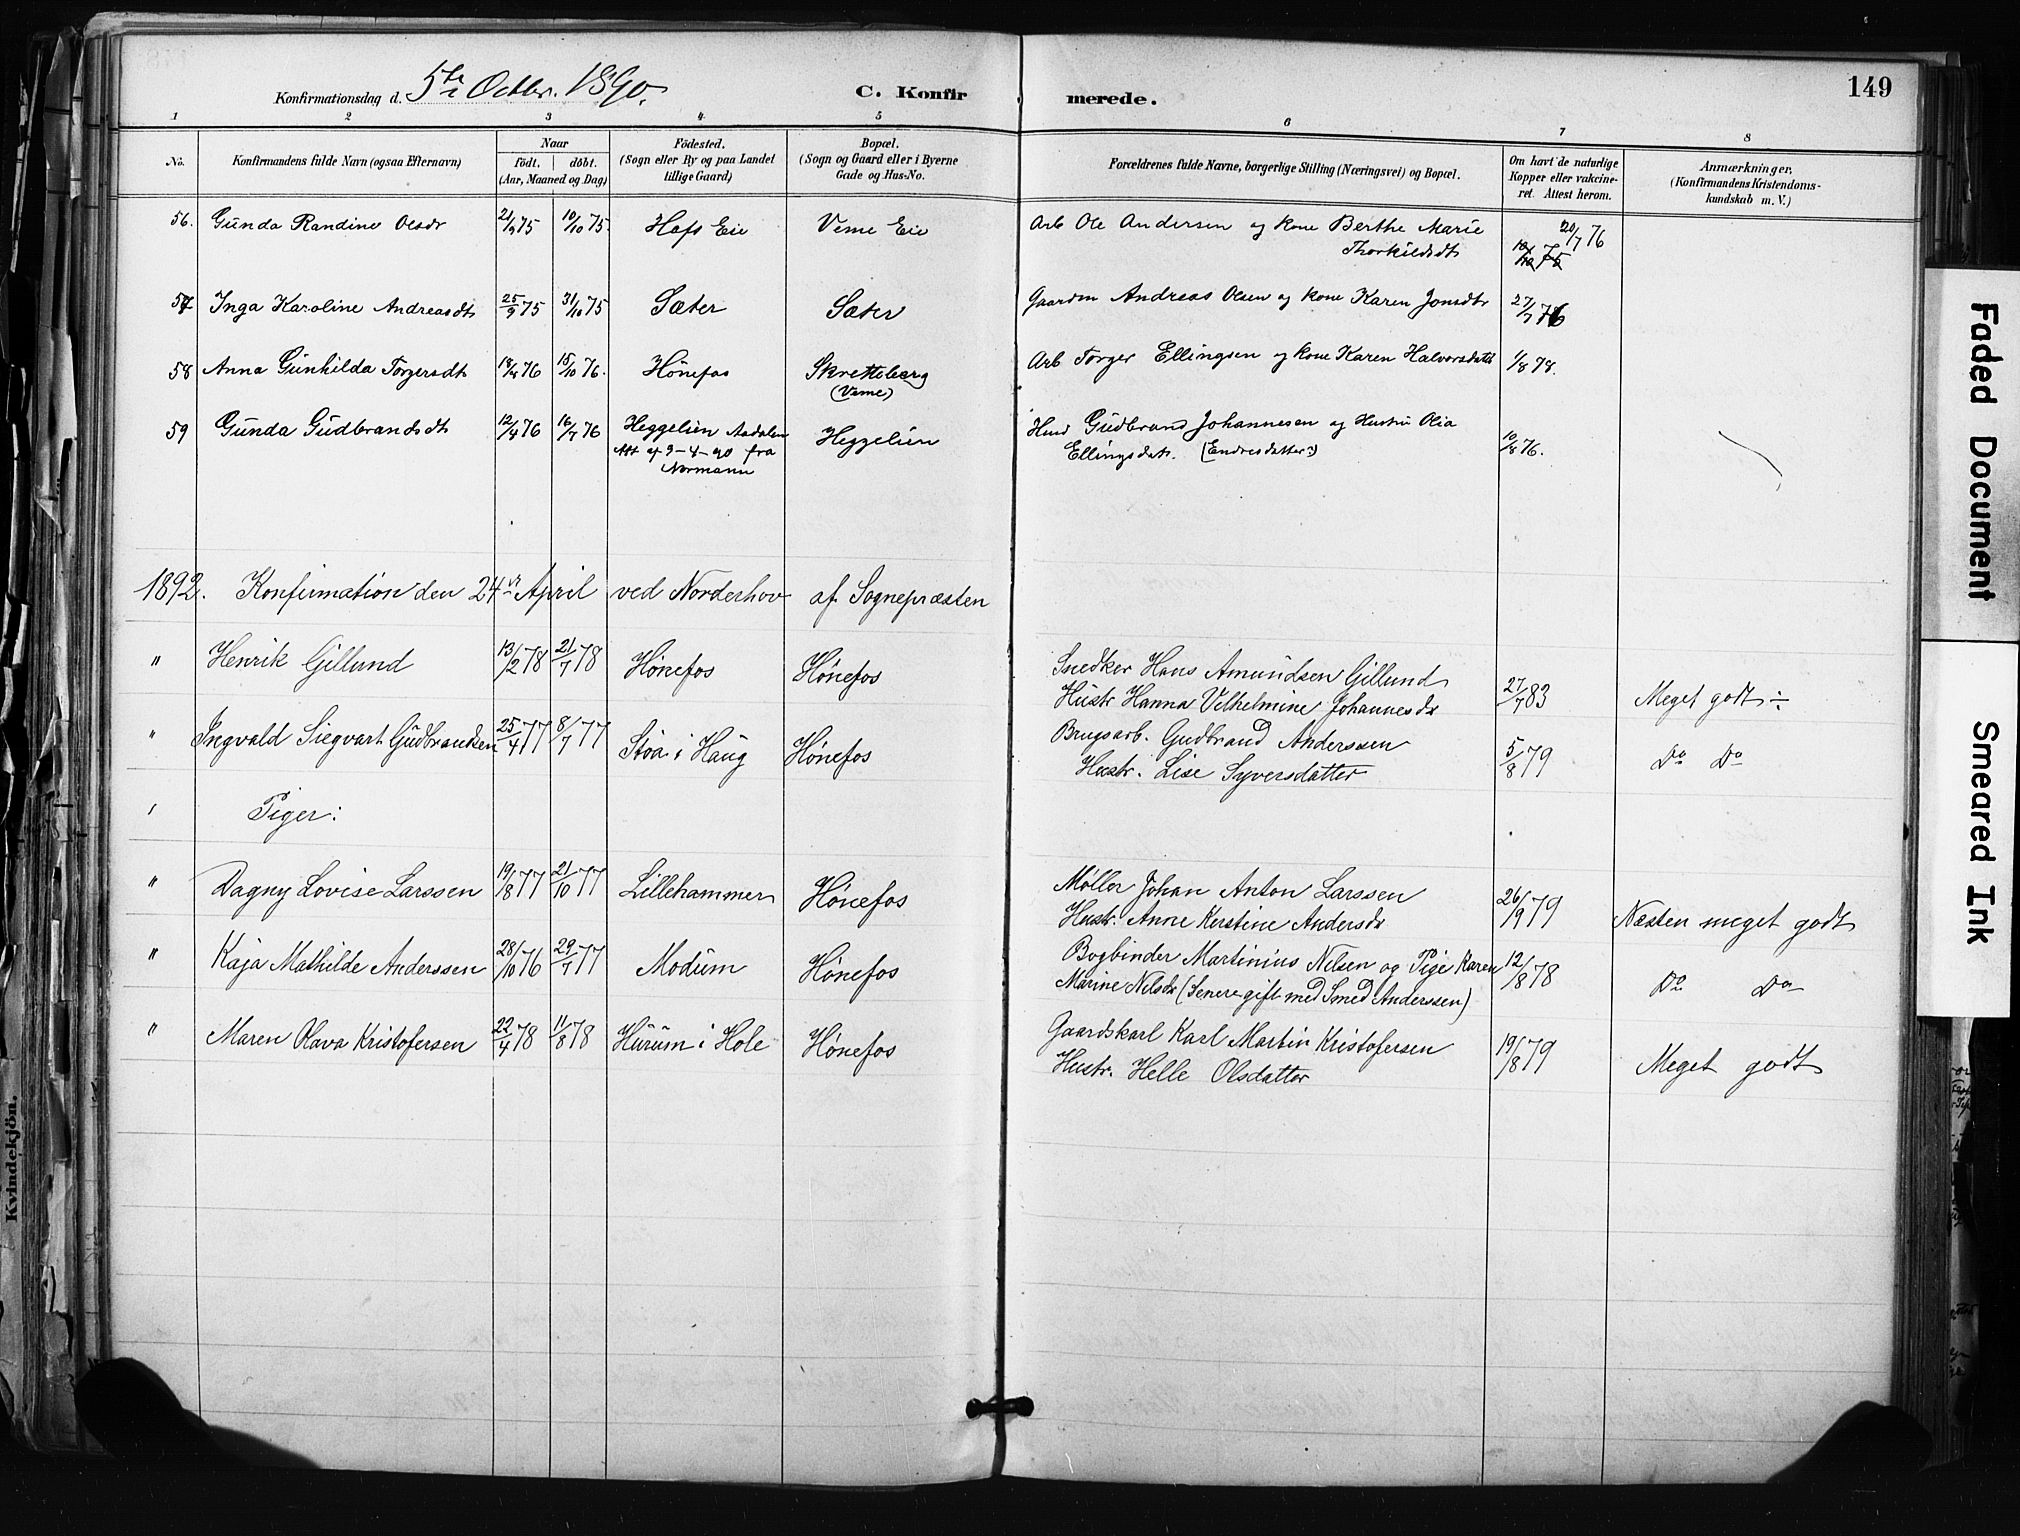 149
Konfirmationsdag d. 5te Octbr. 1890.
C. Konfirmerede.
1 2 3 4 5 6 7 8
No.
Konfirmandens fulde Navn (ogsaa Efternavn)
Naar
födt. döbt.
(Aar, Maaned og Dag)
Födested.
(Sogn eller By og paa Landet
tillige Gaard)
Bopæl.
(Sogn og Gaard eller i Byerne
Gade og Hus-No.
Forældrenes fulde Navne, borgerlige Stilling (Næringsvei) og Bopæl.
Om havt de naturlige
Kopper eller vakcine-
ret. Attest herom.
Anmærkninger,
(Konfirmandens Kristendoms-
kundskab m. V.)
56. Gunda Randine Olsdr 21/9 75 10/10 75. Hofs Eie Veme Eie Arb Ole Andersen og kone Berthe Marie 20/7 76
Thorkildsdt
57 Inga Karoline Andreasdt 25/9 75 31/10 75 Sæter Sæter Gaardm Andreas Olsen og kone Karen Jonsdtr 27/7 76
58 Anna Gunhilda Torgersdt 18/8 76 15/10 76. Hönefos Skretteberg Arb Torger Ellingsen og kone Karen Halvorsdatt 1/8 78.
(Veme)
59 Gunda Gudbrandsdt 12/4 76 16/7 76 Heggelien Aadalen Heggelien Husm Gudbrand Johannesen og Hustru Olia 10/8 76.
Att af 9-4-90 fra Ellingsdatr. (Endresdatter?)
Normann
1892. Konfirmation den 24de April ved Norderhov af Sognepræsten
" Henrik Gillund 13/2 78 21/7 78 Hønefos Hønefos Snedker Hans Amundsen Gillund
Hustr Hanna Vilhelmine Johannesdr 27/7 83 Meget godt ÷
" Ingvald Siegvart Gudbrandsen 25/4 77 8/7 77 Støa i Haug Hønefos Brugsarb. Gudbrand Anderssen
Hustr. Lise Syversdatter 5/8 79 Do Do
Piger:
" Dagny Lovise Larssen 19/8 77 21/10 77 Lillehammer Hønefos Møller Johan Anton Larssen
Hustr. Anne Kerstine Andersdr 26/9 79 Næsten meget godt
" Kaja Mathilde Anderssen 28/10 76 29/7 77 Modum Hønefos Bogbinder Martinius Nilsen og Pige Karen 12/8 78
Marine Nilsdr (Senere gift med Smed Anderssen) Do Do
" Maren Olava Kristofersen 22/4 78 11/8 78 Hurum i Hole Hønefos Gaardskarl Karl Martin Kristofersen 19/8 79
Hustr. Helle Olsdatter Meget godt
Kvindekjön.
Faded Document
Smeared Ink